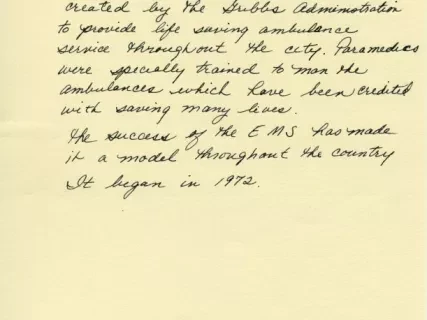 created by the Gribbs Administration
to provide life saving ambulance
service throughout the city. Paramedics
were specially trained to man the
ambulances which have been credited
with saving many lives.
The success of the EMS has made
it a model throughout the country
It began in 1972.